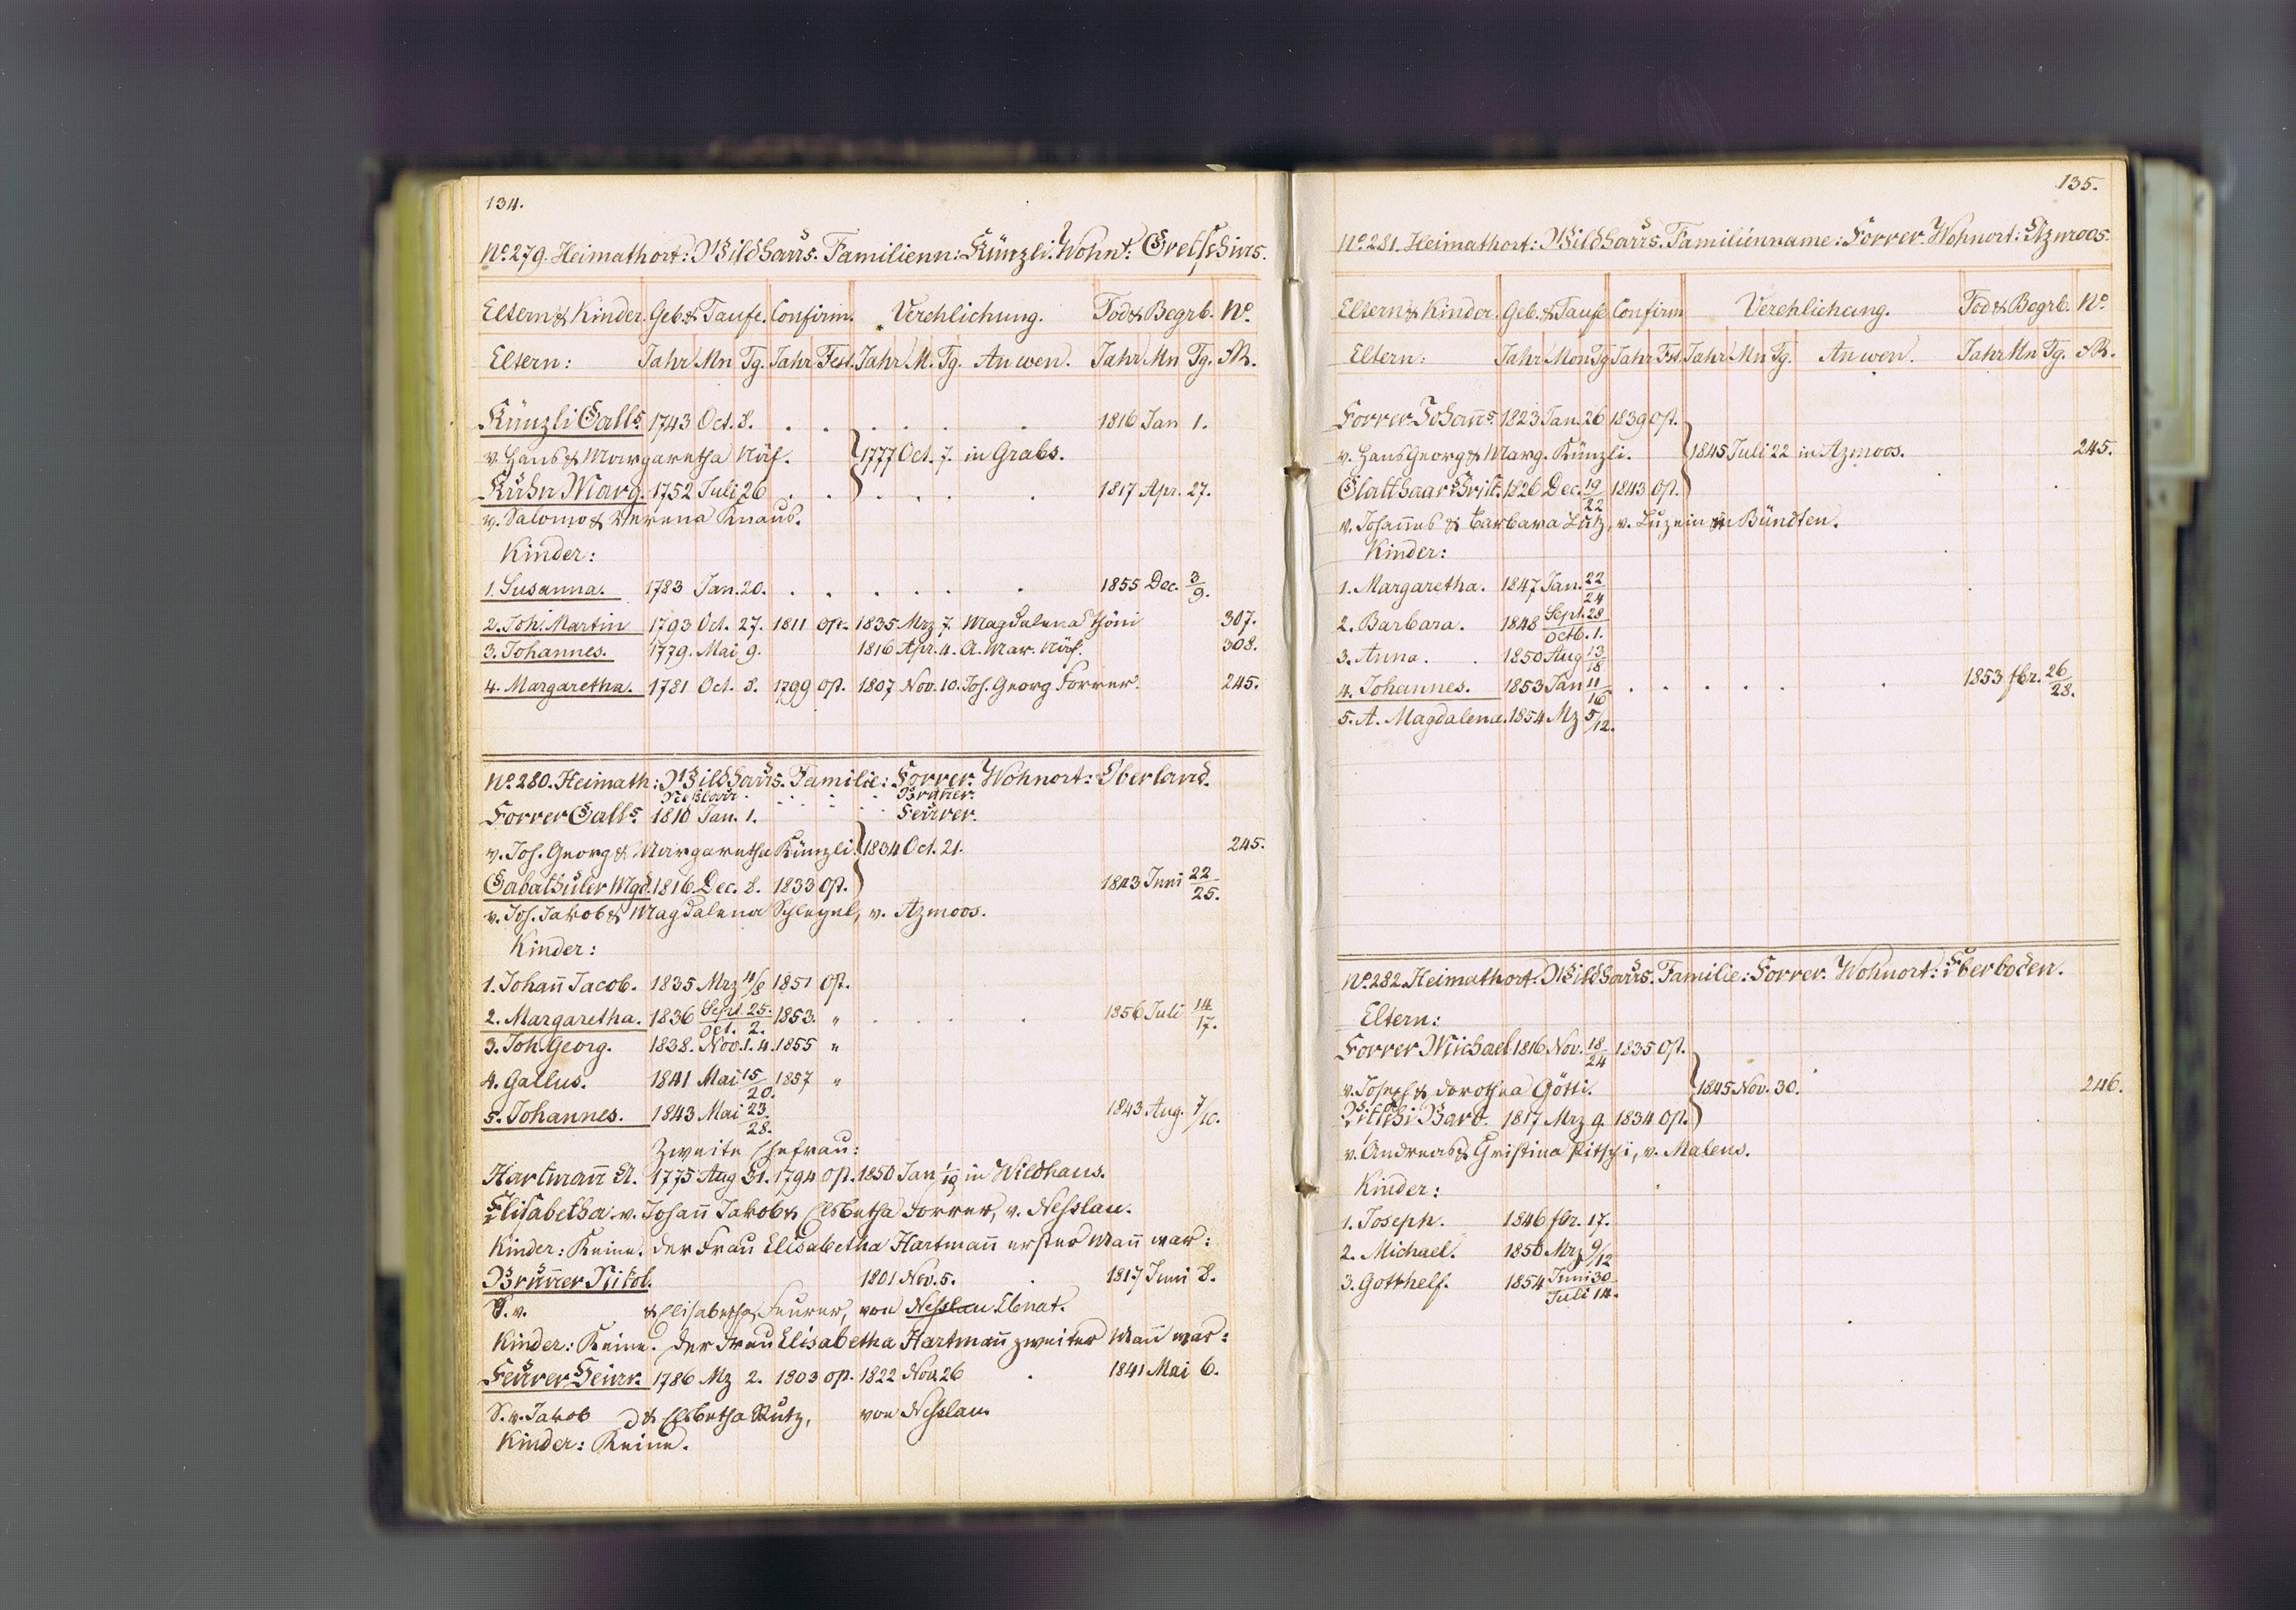 134.
No. 279. Heimathort: Wildhaus. Familienn: Künzli. Wohnt: Gretschins.
Eltern & Kinder. Geb. & Taufe. Confirm. Verehlichung. Tod & Begrb. No.
Eltern: Jahr Mn Tg. Jahr Fest. Jahr M. Tg. An wen. Jahr Mn Tg. R.
Künzli Galls. 1743 Oct. 8. . . . . . . . 1816 Jan 1.
v. Hans & Margaretha Näf. 1777 Oct. 7. in Grabs.
Kuhn Marg. 1752 Juli 26 . . . . . . 1817 Apr. 27.
v. Salomo & Verena Knaus.
Kinder:
1. Susanna. 1783 Jan. 20. . . . . . . 1855 Dec. 3/9.
2. Joh. Martin 1793 Oct. 27. 1811 Op. 1835 Mrz 7. Magdalena Thöni 307.
3. Johannes. 1779. Mai 9. 1816 Apr. 4. A. Mar. Näf. 308.
4. Margaretha. 1781 Oct. 8. 1799 Op. 1807 Nov. 10. Joh. Georg Forrer. 245.
No. 280. Heimath: Wildhaus. Familie: Forrer. Wohnort: Oberland.
Neßlau. Bruner.
Forrer Galls. 1810 Jan. 1. Feurer.
v. Joh. Georg & Margaretha Künzli 1834 Oct. 21. 245.
Gabathuler Mgd. 1816. Dec. 8. 1833 Op. 1843 Juni 22/25.
v. Joh. Jakob & Magdalena Schlegel, v. Azmoos.
Kinder:
1. Johan̄ Jacob. 1835 Mrz 4/8 1851 Op.
2. Margaretha. 1836 Sept. 25. / Oct. 2. 1853. „ . . . . 1856 Juli 14/17.
3. Joh. Georg. 1838. Nov. 1. 4. 1855 „
4. Gallus. 1841 Mai 15/20. 1857 „
5. Johannes. 1843 Mai 23/28. 1843 Aug. 7/10.
Zweite Ehefrau:
Hartman̄ A. 1775 Aug 31. 1794 Op. 1850 Jan 1/19 in Wildhaus.
Elisabetha v. Johan̄ Jakob & Elsbetha Forrer, v. Nesslau.
Kinder: Keine. Der Frau Elisabetha Hartman̄ erster Man̄ war:
Brun̄er Nikol. 1801 Nov. 5. . 1817 Juni 8.
S. v. & Elisabetha Feurer, von Nesslau Ebnat.
Kinder: Keine. Der Frau Elisabetha Hartman̄ zweiter Man̄ war:
Feurer Heinr. 1786 Mz 2. 1803 Op. 1822 Nov. 26 . 1841 Mai 6.
S. v. Jakob & Elsbetha Rutz, von Nesslau.
Kinder: Keine.
135.
No. 281. Heimathort: Wildhaus. Familienname: Forrer. Wohnort: Azmoos.
Eltern & Kinder. Geb. & Taufe Confirm Verehlichung. Tod & Begrb. No.
Eltern: Jahr Mon Tg Jahr Fst. Jahr Mn Tg. An wen. Jahr Mn Tg. R.
Forrer Johans. 1823 Jan. 26 1839 Op.
v. Hans Georg & Marg. Künzli. 1845 Juli 22 in Azmoos. 245.
Glatthaar 1826 Dec. 19/22 1843 Op.
v. Johan̄es & Barbara Lutz, v. Luzein in Bündten.
Kinder:
1. Margaretha. 1847 Jan. 22/24
2. Barbara. 1848 Sept. 28 / Octb. 1.
3. Anna. . 1850 Aug 13/18
4. Johannes. 1853 Jan 11/16 . . . . . . 1853 fbr. 26/28.
5. A. Magdalena. 1854 Mz 5/12.
No. 282. Heimathort: Wildhaus. Familie: Forrer. Wohnort: Oberboden.
Eltern:
Forrer Michael 1816 Nov. 18/24 1835 Op.
v. Joseph & Dorothea Götti. 1845 Nov. 30. 246.
Pitschi Barb. 1817 Mrz 9. 1834 Op.
v. Andreas & Christina Pitschi, v. Malens.
Kinder:
1. Joseph. 1846 fbr. 17.
2. Michael. 1850 Mrz 9/12
3. Gotthelf. 1854 Juni 30 / Juli 14.